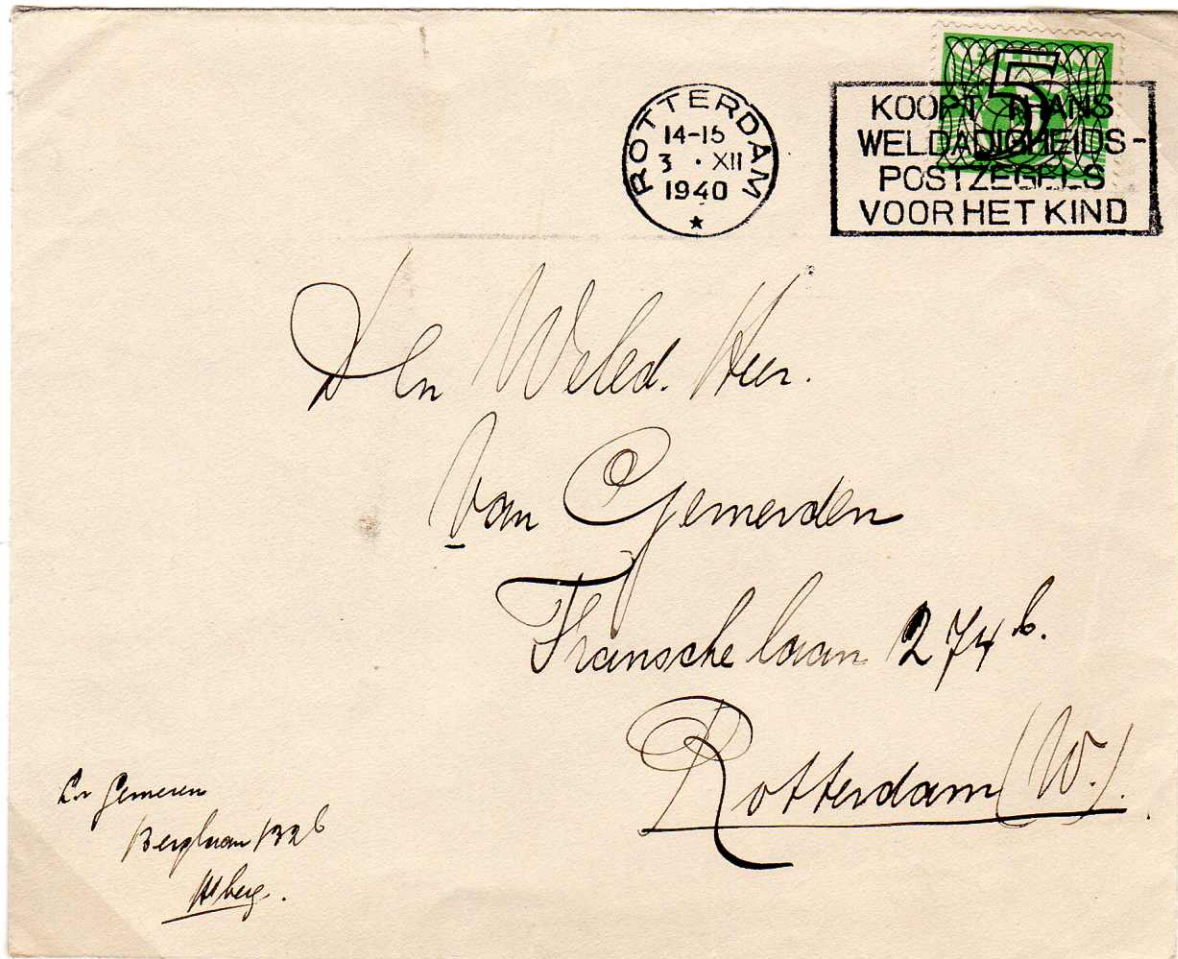 5
ROTTERDAM
14-15
3 · XII
1940
KOOPT THANS
WELDADIGHEIDS-
POSTZEGELS
VOOR HET KIND
Den Weled. Heer.
Van Gemerden
Fransche laan 274 b.
Rotterdam (W.).